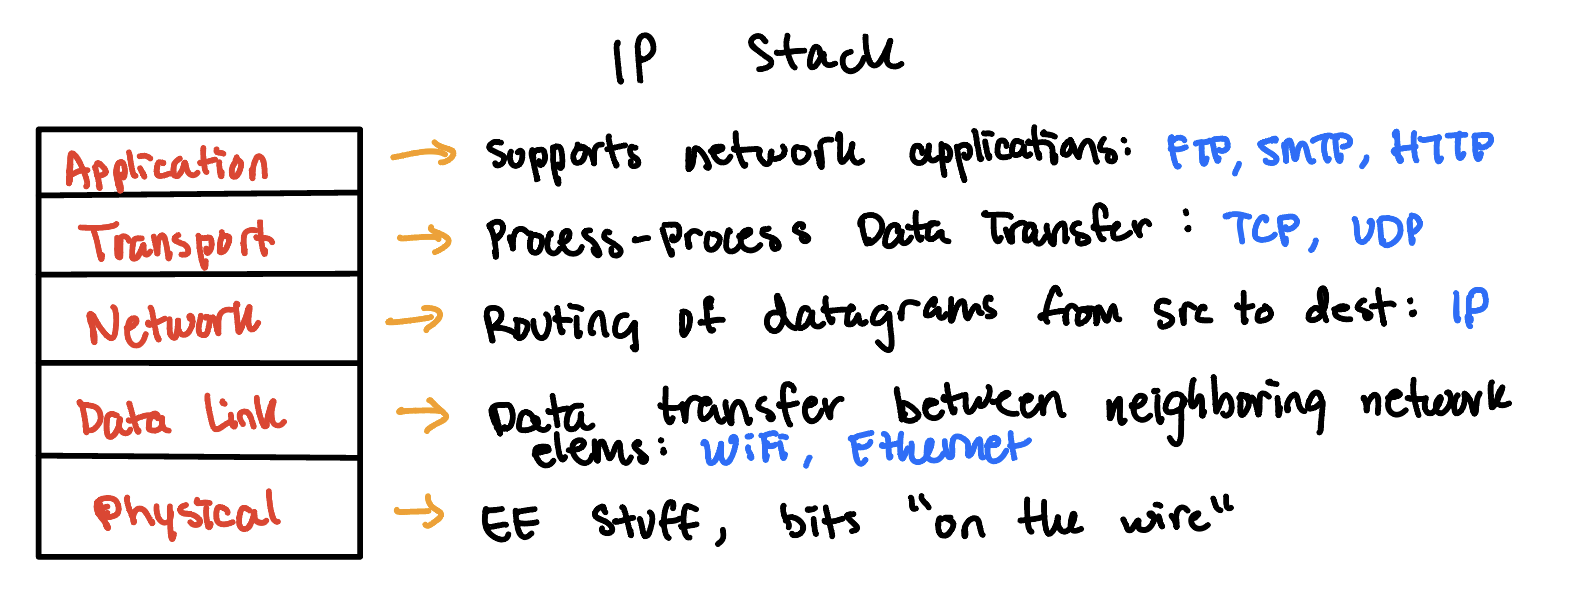 IP Stack
Application → Supports network applications: FTP, SMTP, HTTP
Transport → Process-Process Data Transfer: TCP, UDP
Network → Routing of datagrams from src to dest: IP
Data Link → Data transfer between neighboring network
elems: WiFi, Ethernet
Physical → EE Stuff, bits "on the wire"